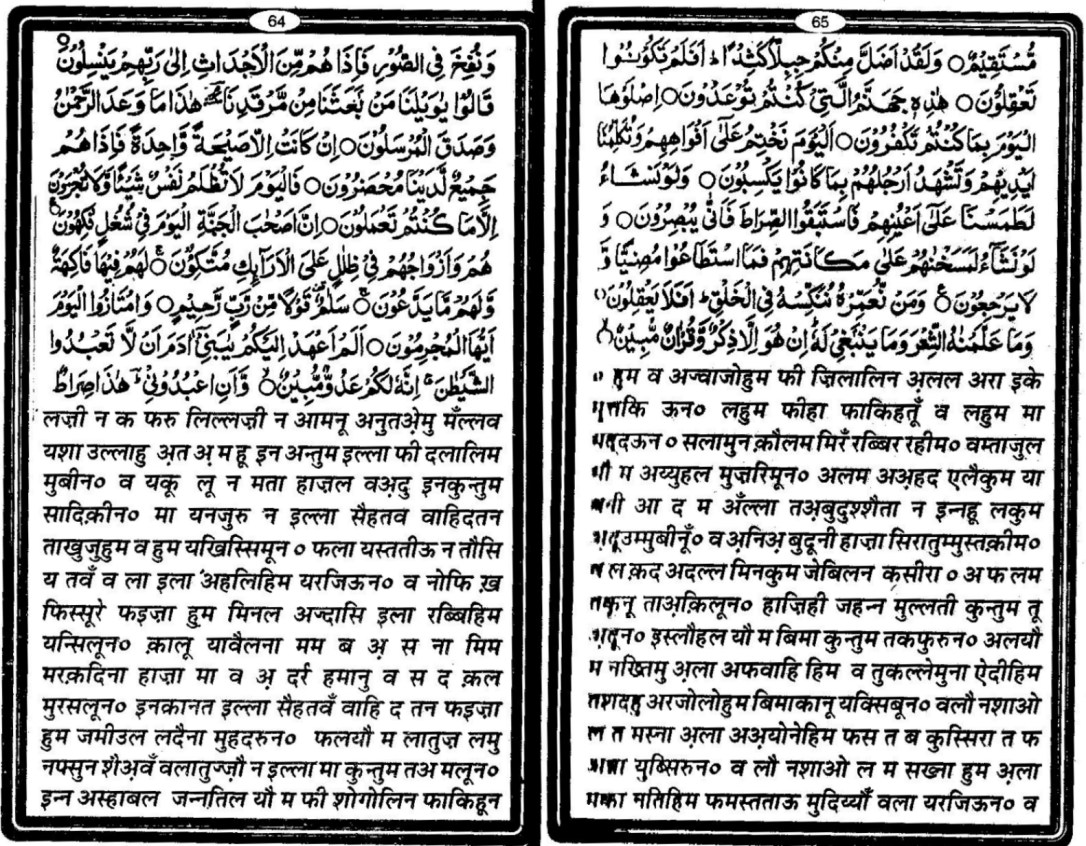 64
وَنُفِخَ فِى الصُّوْرِ فَاِذَا هُمْ مِّنَ الْاَجْدَاثِ اِلٰى رَبِّهِمْ يَنْسِلُوْنَ
قَالُوْا يٰوَيْلَنَا مَنْ بَعَثَنَا مِنْ مَّرْقَدِنَا هٰذَا مَا وَعَدَ الرَّحْمٰنُ
وَصَدَقَ الْمُرْسَلُوْنَ○ اِنْ كَانَتْ اِلَّا صَيْحَةً وَّاحِدَةً فَاِذَا هُمْ
جَمِيْعٌ لَّدَيْنَا مُحْضَرُوْنَ○ فَالْيَوْمَ لَا تُظْلَمُ نَفْسٌ شَيْئًا وَّلَا تُجْزَوْنَ
اِلَّا مَا كُنْتُمْ تَعْمَلُوْنَ○ اِنَّ اَصْحٰبَ الْجَنَّةِ الْيَوْمَ فِىْ شُغُلٍ فٰكِهُوْنَ
هُمْ وَاَزْوَاجُهُمْ فِىْ ظِلٰلٍ عَلَى الْاَرَآىِٕكِ مُتَّكِـُٔوْنَ○ لَهُمْ فِيْهَا فَاكِهَةٌ
وَّلَهُمْ مَّا يَدَّعُوْنَ○ سَلٰمٌ قَوْلًا مِّنْ رَّبٍّ رَّحِيْمٍ○ وَامْتَازُوا الْيَوْمَ
اَيُّهَا الْمُجْرِمُوْنَ○ اَلَمْ اَعْهَدْ اِلَيْكُمْ يٰبَنِىْٓ اٰدَمَ اَنْ لَّا تَعْبُدُوا
الشَّيْطٰنَ اِنَّهٗ لَكُمْ عَدُوٌّ مُّبِيْنٌ○ وَّاَنِ اعْبُدُوْنِىْ هٰذَا صِرَاطٌ
लज़ी न क फरु लिल्लज़ी न आमनू अनुतअ़ेमु मँल्लव
यशा उल्लाहु अत अ़ म हू इन अन्तुम इल्ला फी दलालिम
मुबीन० व यकू लू न मता हाज़ल वअ़दु इनकुन्तुम
सादिक़ीन० मा यनजुरु न इल्ला सैहतव वाहिदतन
ताखुजुहुम व हुम यखिस्सिमून ० फला यस्ततीऊ न तौसि
य तवँ व ला इला अहलिहिम यरजिऊन० व नोफि ख़
फिस्सूरे फइज़ा हुम मिनल अज्दासि इला रब्बिहिम
यन्सिलून० क़ालू यावैलना मम ब अ़ स ना मिम
मरक़दिना हाज़ा मा व अ़ दर्र हमानु व स द क़ल
मुरसलून० इनकानत इल्ला सैहतवँ वाहि द तन फइज़ा
हुम जमीउल लदैना मुहदरुन० फलयौ म लातुज़ लमु
नफ्सुन शैअवँ वलातुज्ज़ौ न इल्ला मा कुन्तुम तअ मलून०
इन्न अस्हाबल जन्नतिल यौ म फी शोगोलिन फाकिहून
65
مُّسْتَقِيْمٌ○ وَلَقَدْ اَضَلَّ مِنْكُمْ جِبِلًّا كَثِيْرًا اَفَلَمْ تَكُوْنُوْا
تَعْقِلُوْنَ○ هٰذِهٖ جَهَنَّمُ الَّتِىْ كُنْتُمْ تُوْعَدُوْنَ○ اِصْلَوْهَا
الْيَوْمَ بِمَا كُنْتُمْ تَكْفُرُوْنَ○ اَلْيَوْمَ نَخْتِمُ عَلٰٓى اَفْوَاهِهِمْ وَتُكَلِّمُنَا
اَيْدِيْهِمْ وَتَشْهَدُ اَرْجُلُهُمْ بِمَا كَانُوْا يَكْسِبُوْنَ○ وَلَوْ نَشَآءُ
لَطَمَسْنَا عَلٰٓى اَعْيُنِهِمْ فَاسْتَبَقُوا الصِّرَاطَ فَاَنّٰى يُبْصِرُوْنَ○ وَ
لَوْ نَشَآءُ لَمَسَخْنٰهُمْ عَلٰى مَكَانَتِهِمْ فَمَا اسْتَطَاعُوْا مُضِيًّا وَّ
لَا يَرْجِعُوْنَ○ وَمَنْ نُّعَمِّرْهُ نُنَكِّسْهُ فِى الْخَلْقِ اَفَلَا يَعْقِلُوْنَ○
وَمَا عَلَّمْنٰهُ الشِّعْرَ وَمَا يَنْۢبَغِىْ لَهٗ اِنْ هُوَ اِلَّا ذِكْرٌ وَّقُرْاٰنٌ مُّبِيْنٌ
० हुम व अज्वाजोहुम फी ज़िलालिन अ़लल अरा इके
मुत्तकि ऊन० लहुम फीहा फाकिहतूँ व लहुम मा
यद्दऊन ० सलामुन क़ौलम मिरँ रब्बिर रहीम० वम्ताजुल
यौ म अय्युहल मुज़रिमून० अलम अअ़हद एलैकुम या
बनी आ द म अँल्ला तअ़बुदुश्शैता न इन्नहू लकुम
अ़दूउम्मुबीनूँ० व अ़निअ़ बुदूनी हाज़ा सिरातुम्मुस्तक़ीम०
व ल क़द अदल्ल मिनकुम जेबिलन कसीरा ० अ फ लम
तकूनू ताअ़क़िलून० हाज़िही जहन्न मुल्लती कुन्तुम तू
अ़दून० इस्लौहल यौ म बिमा कुन्तुम तकफुरुन० अलयौ
म नख्तिमु अ़ला अफवाहि हिम व तुकल्लेमुना ऐदीहिम
तशदहु अरजोलोहुम बिमाकानू यक्सिबून० वलौ नशाओ
ल त मस्ना अ़ला अअ़योनेहिम फस त ब कुस्सिरा त फ
अन्ना युब्सिरुन० व लौ नशाओ ल म सख्ना हुम अ़ला
मका नतिहिम फमस्तताऊ मुदिय्यौं वला यरजिऊन० व